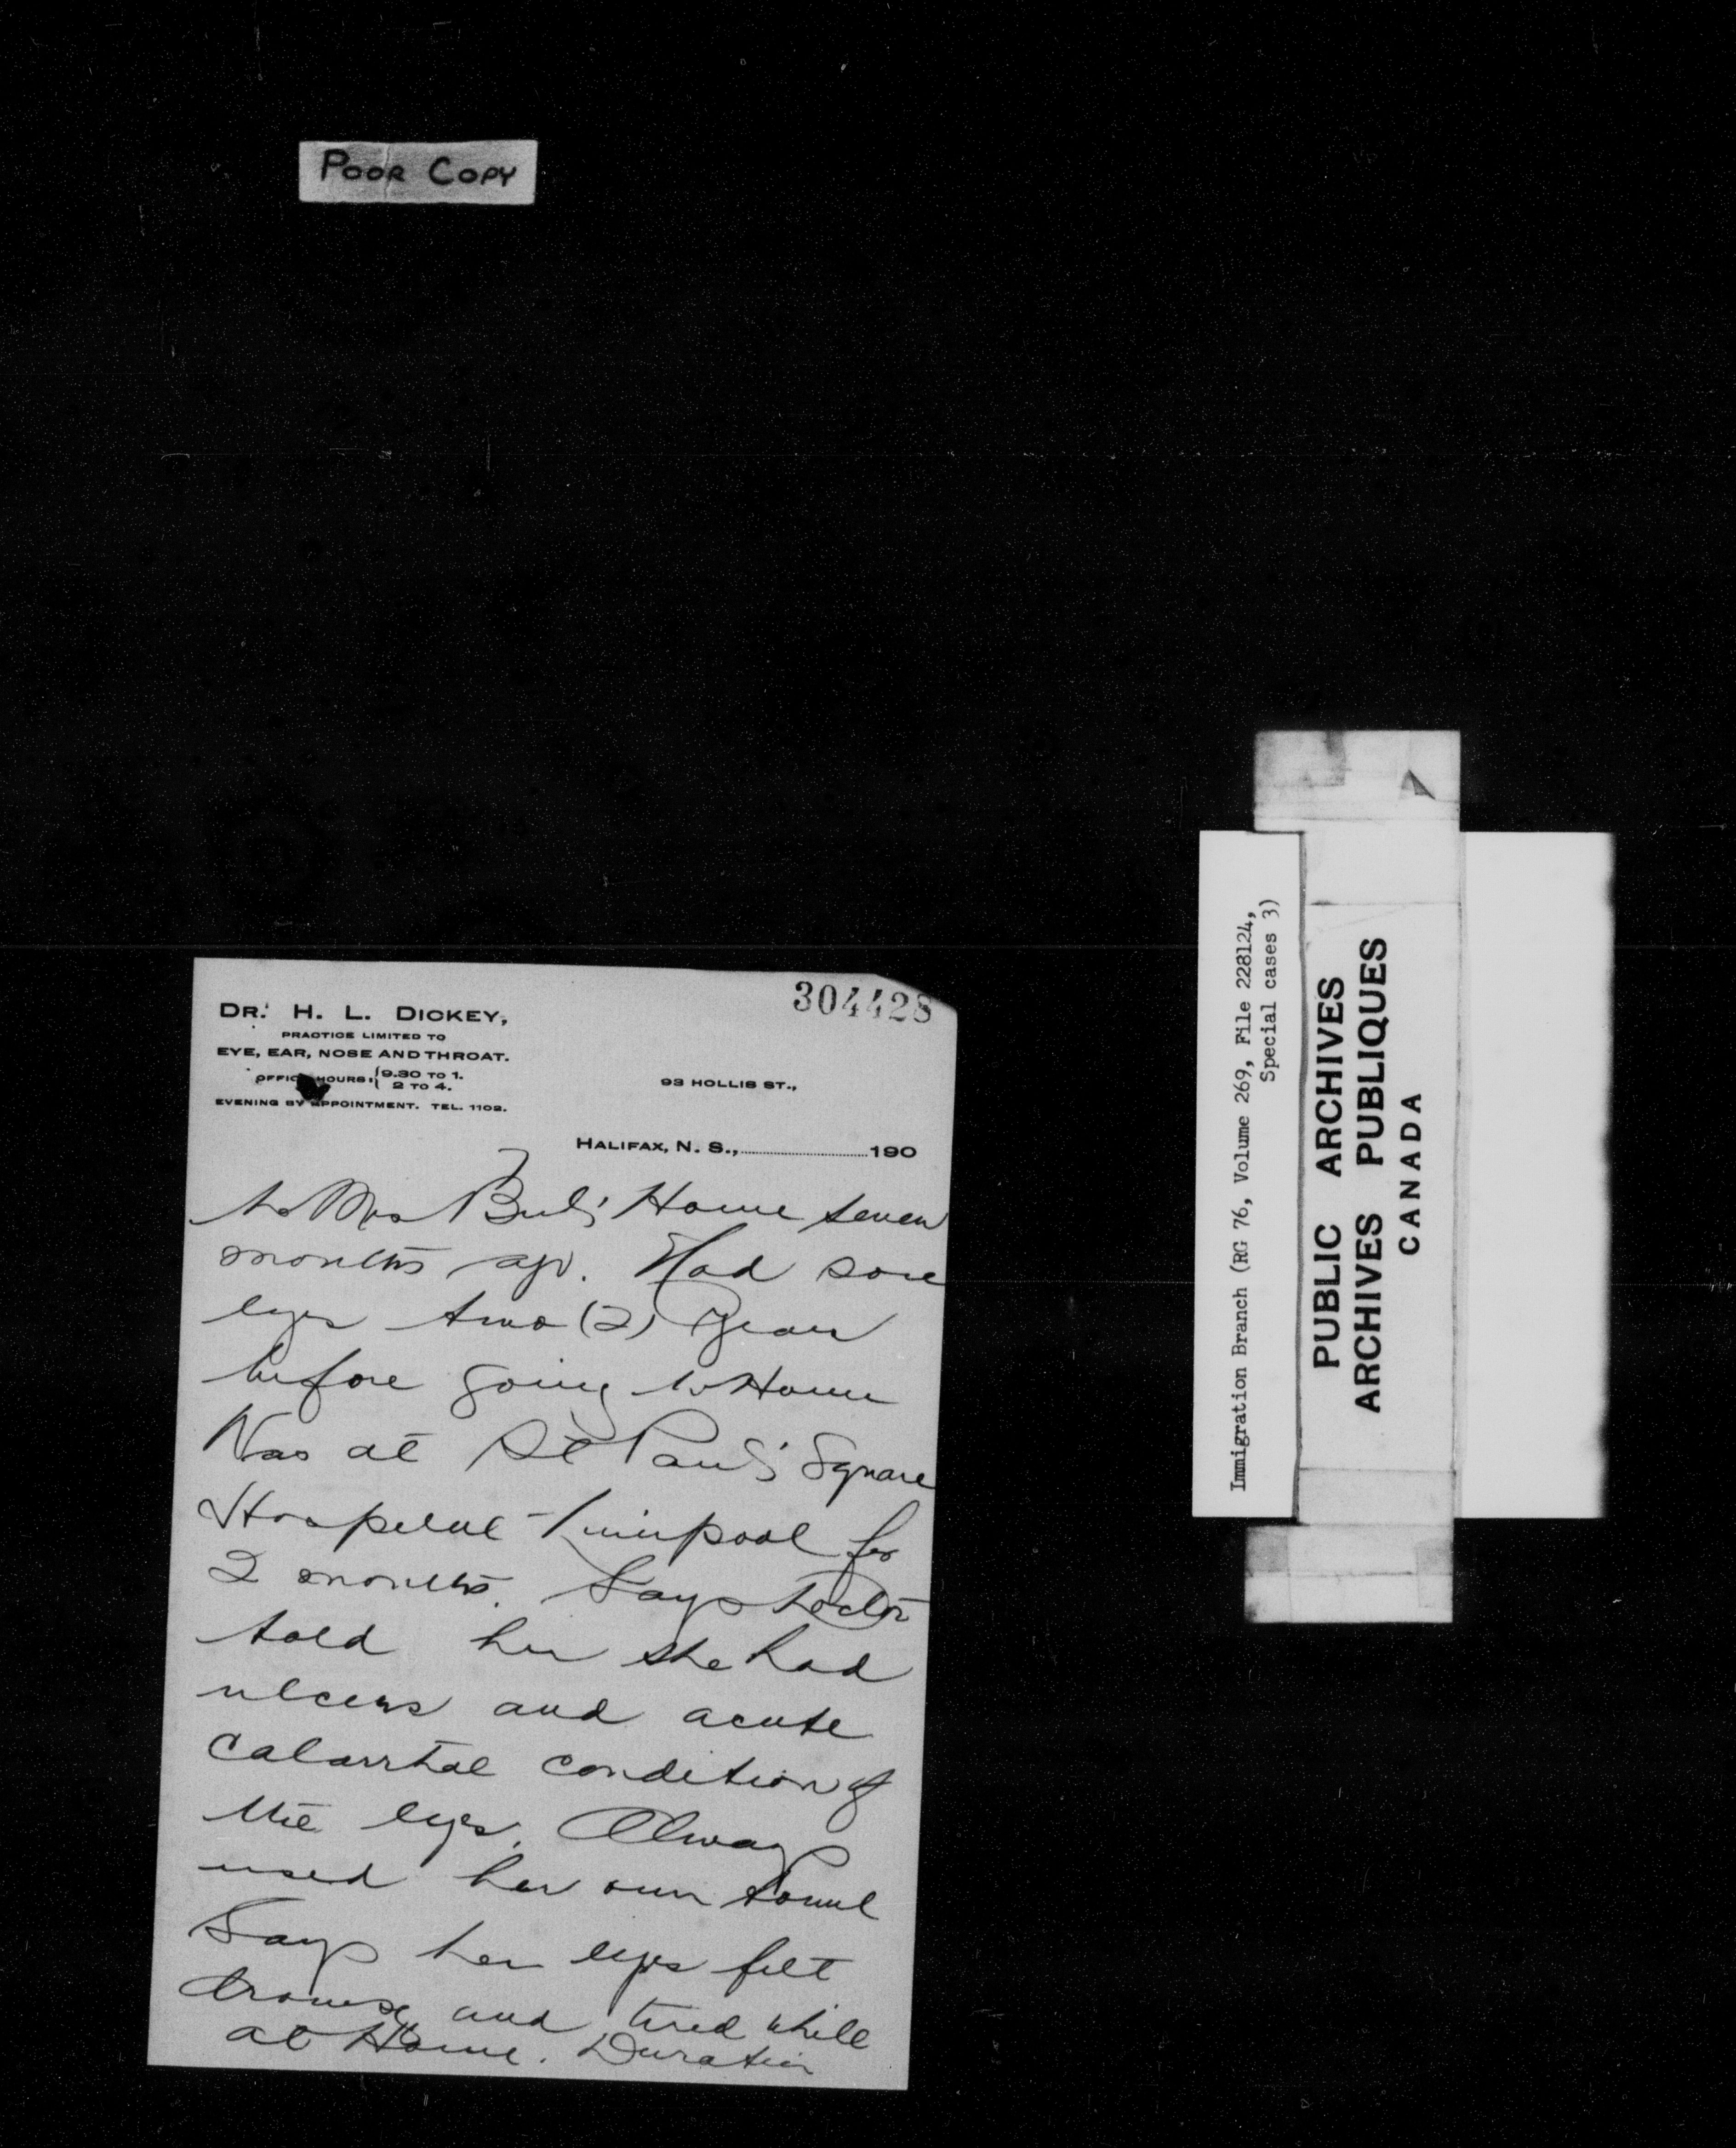 POOR COPY
304428
DR. H. L. DICKEY,
PRACTICE LIMITED TO
EYE, EAR, NOSE AND THROAT.
OFFICE HOURS: { 9.30 TO 1.
2 TO 4.
EVENING BY APPOINTMENT. TEL. 1102.
93 HOLLIS ST.,
HALIFAX, N. S.,..............190
to Mrs Home seven
months ago. Had sore
eyes two (2) years
before going to Home
Was at St Paul's Square
Hospital - Liverpool for
2 months. Says Doctor
told her she had
ulcers and acute
catarrhal condition of
the eyes. Always
used her own towel
Says her eyes felt
and tired while
at Home. Duration
Immigration Branch (RG 76, Volume 269, File 228124,
Special cases 3)
PUBLIC ARCHIVES
ARCHIVES PUBLIQUES
CANADA